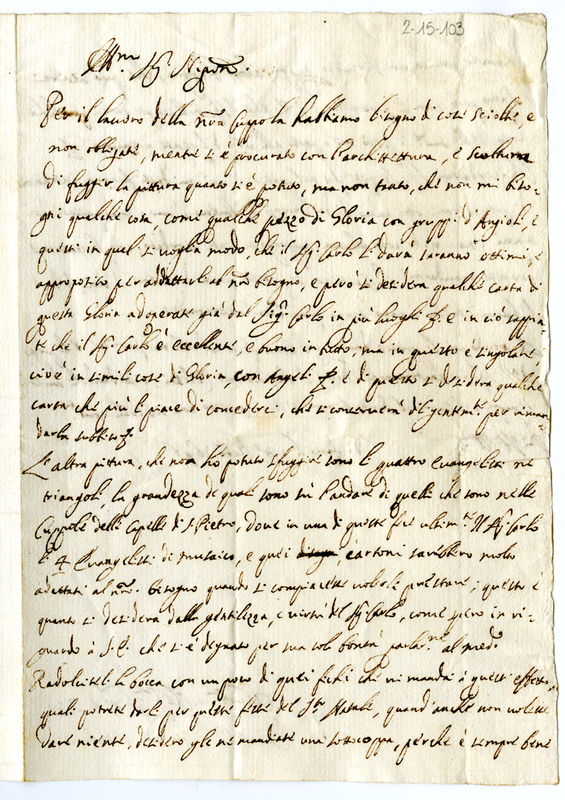 2-15-103
Ill.mo Sig. Nipote.
Per il lavoro della nra Cupola habbiamo bisogno di cose sciolte, e
non obligate, mentre si è procurato con l'architettura, e scoltura
di fuggir la pittura quanto si è potuto, ma non tanto, che non mi biso-
gni qualche cosa, come qualche pezzo di Gloria con gruppi d'Angioli, e
questi in qual si voglia modo, che il Sig. Carlo li darà saranno ottimi, e
approposito per addattarle al nro bisogno, e però si desidera qualche carta di
questa Gloria adoperate già dal Sig. Carlo in più luoghi e in ciò sappia-
te che il Sig. Carlo è eccellente, e buono in tutto, ma in questo è singolare
cioè in simili cose di Gloria, con Angeli e di questo si desidera qualche
carta che più li piace di concederci, che si conserverà diligentemte per riman-
darla subbito
L'altra pittura, che non hò potuto sfuggire sono li quattro Evangelisti ne
triangoli, la grandezza de quali sono sù l'andare di quelli che sono nelle
Cuppole delle Capelle di S. Pietro, dove in una di queste fece ultimte il Sig. Carlo
li 4 Evangelisti di musaico, e quei cartoni sarebbero molto
adattati al nro bisogno quando si compiacesse volerli prestare; questo è
quanto si desidera dalla gentilezza, e virtù del Sig. Carlo, come spero in ri-
guardo à S.E. che si è degnato per sua sola bontà parlarne al medo
Radolciteli la bocca con un poco di quei fichi che vi mandai à questi effetto,
quali potrete darli per queste feste del Sto Natale, quand'anche non volesse
dare niente, desidero gle ne mandiate una sottocoppa, perche è sempre bene